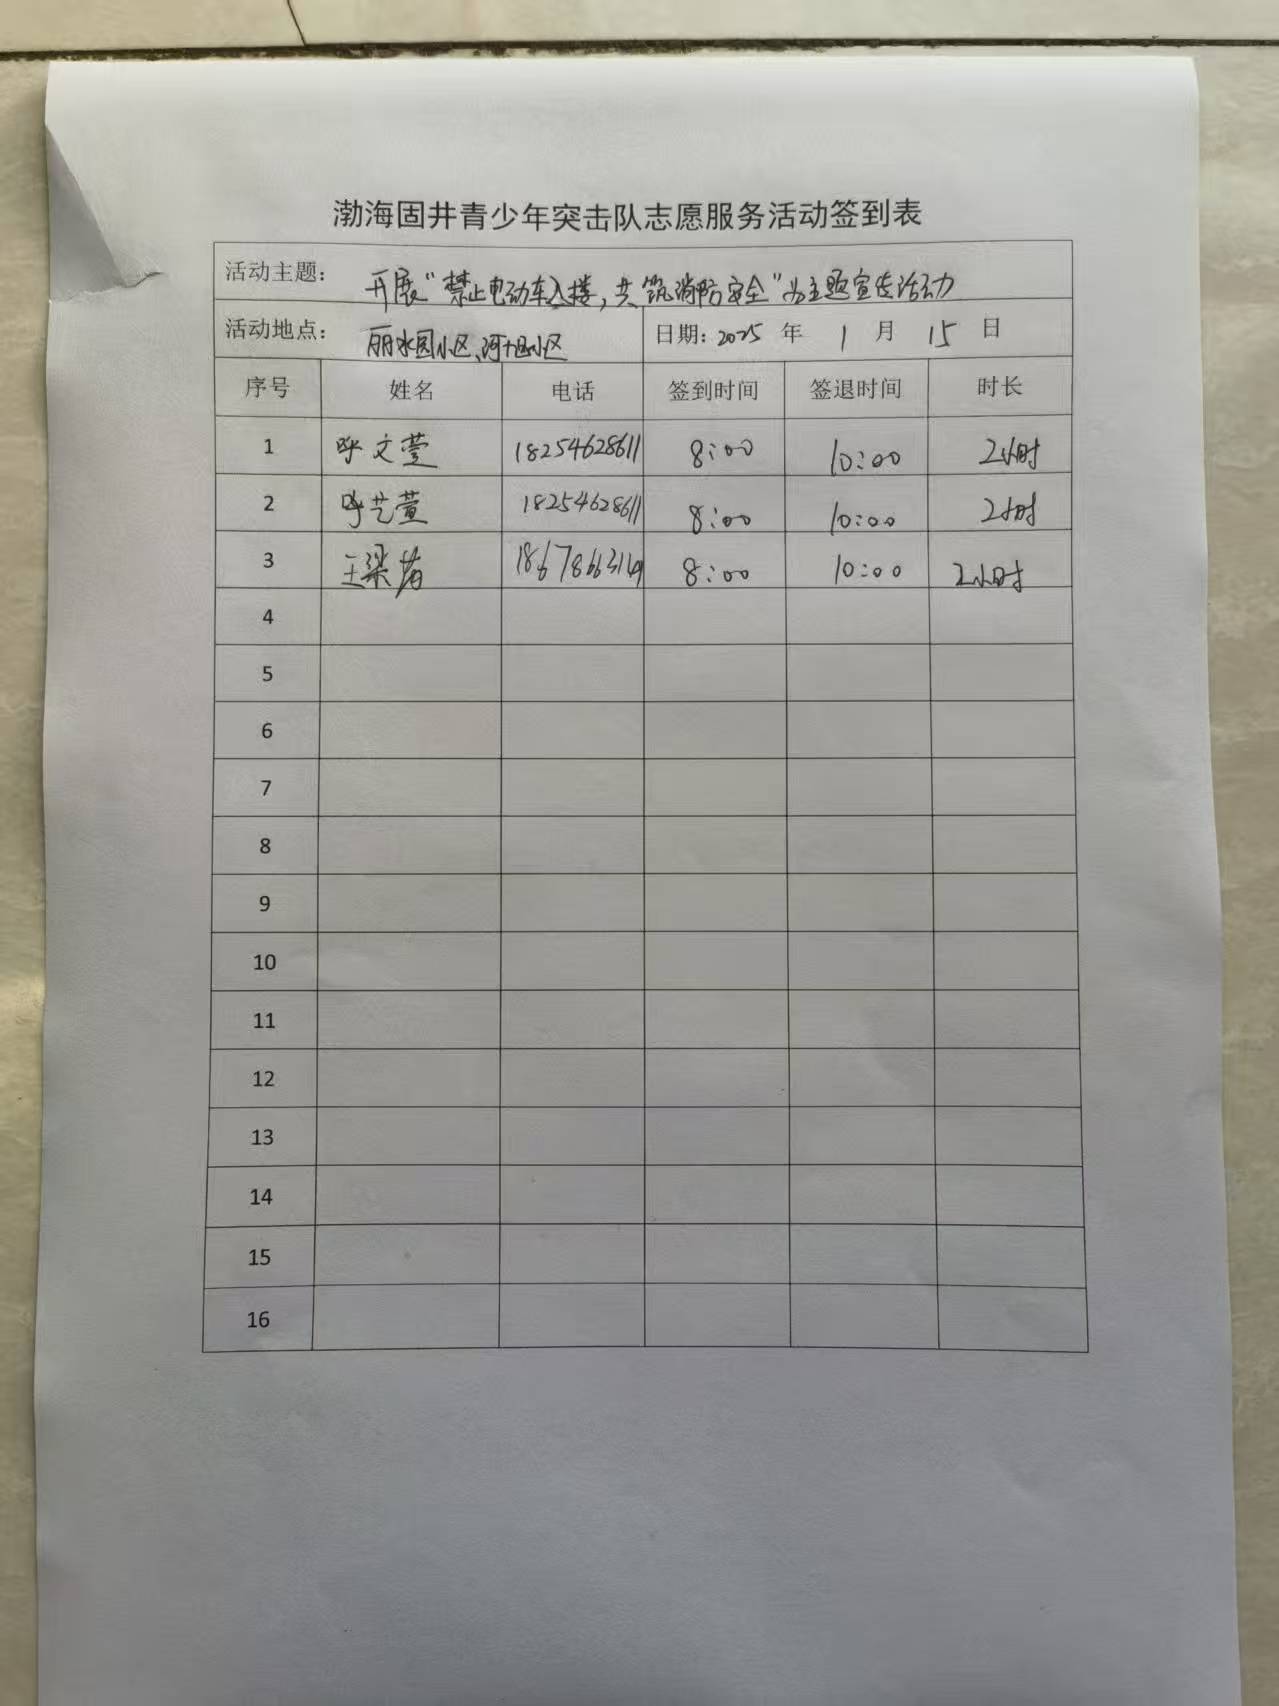 渤海固井青少年突击队志愿服务活动签到表
活动主题： 开展“禁止电动车入楼，共筑消防安全”为主题宣传活动
活动地点： 丽水园小区、河十区小区 日期：2025 年 1 月 15 日
序号 姓名 电话 签到时间 签退时间 时长
1 呼文萱 18254628611 8:00 10:00 2小时
2 呼艺萱 18254628611 8:00 10:00 2小时
3 王梁 8:00 10:00 2小时
4
5
6
7
8
9
10
11
12
13
14
15
16